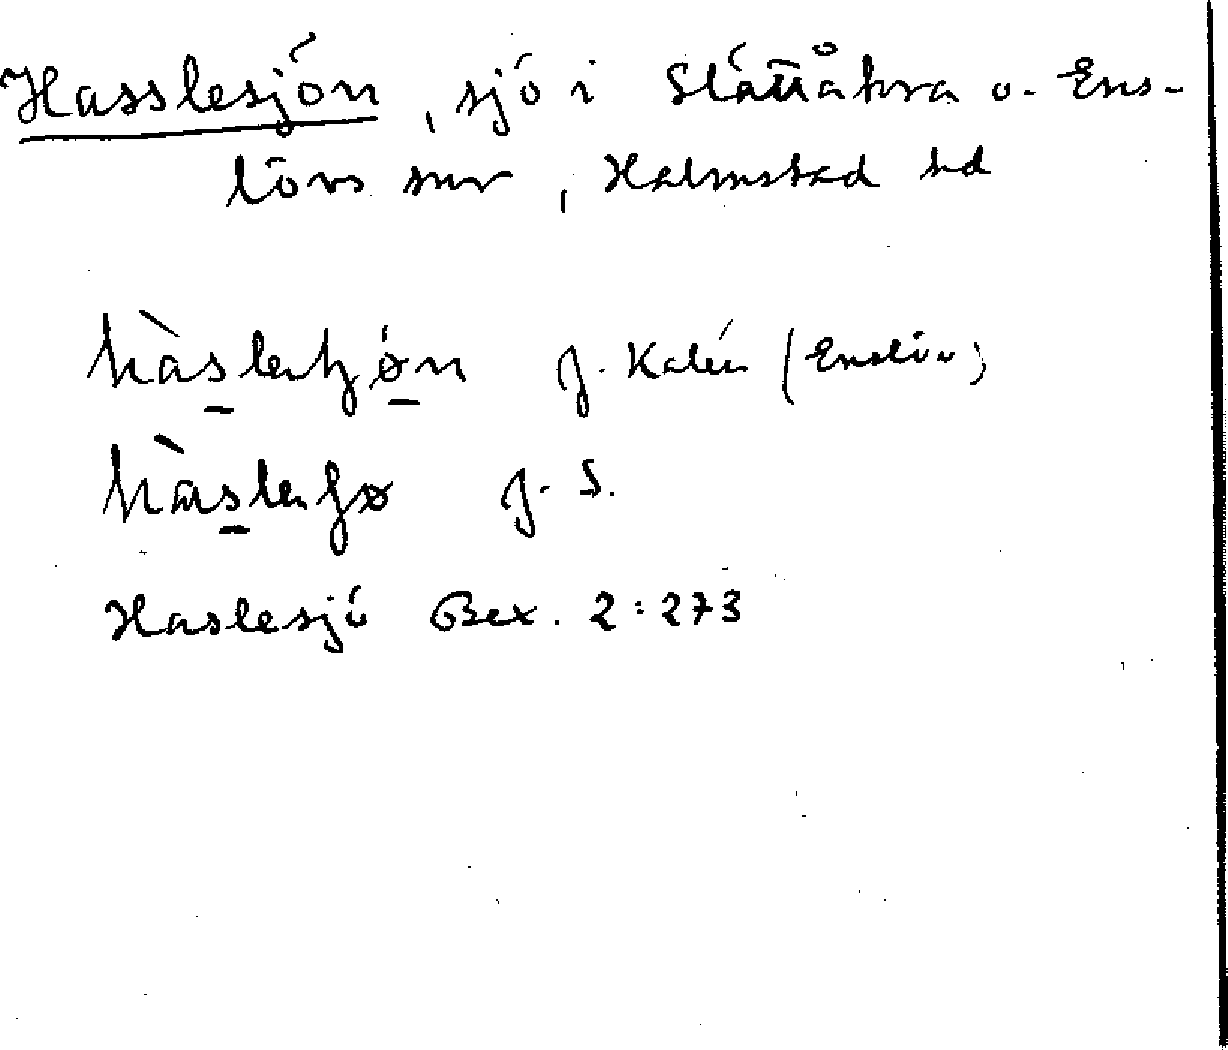 Hasslesjön, sjö i Slättåkra o. Ens-
lövs snr, Halmstad hd
J. Kalén (Enslöv)
J. S.
Haslesjö Bex. 2:273